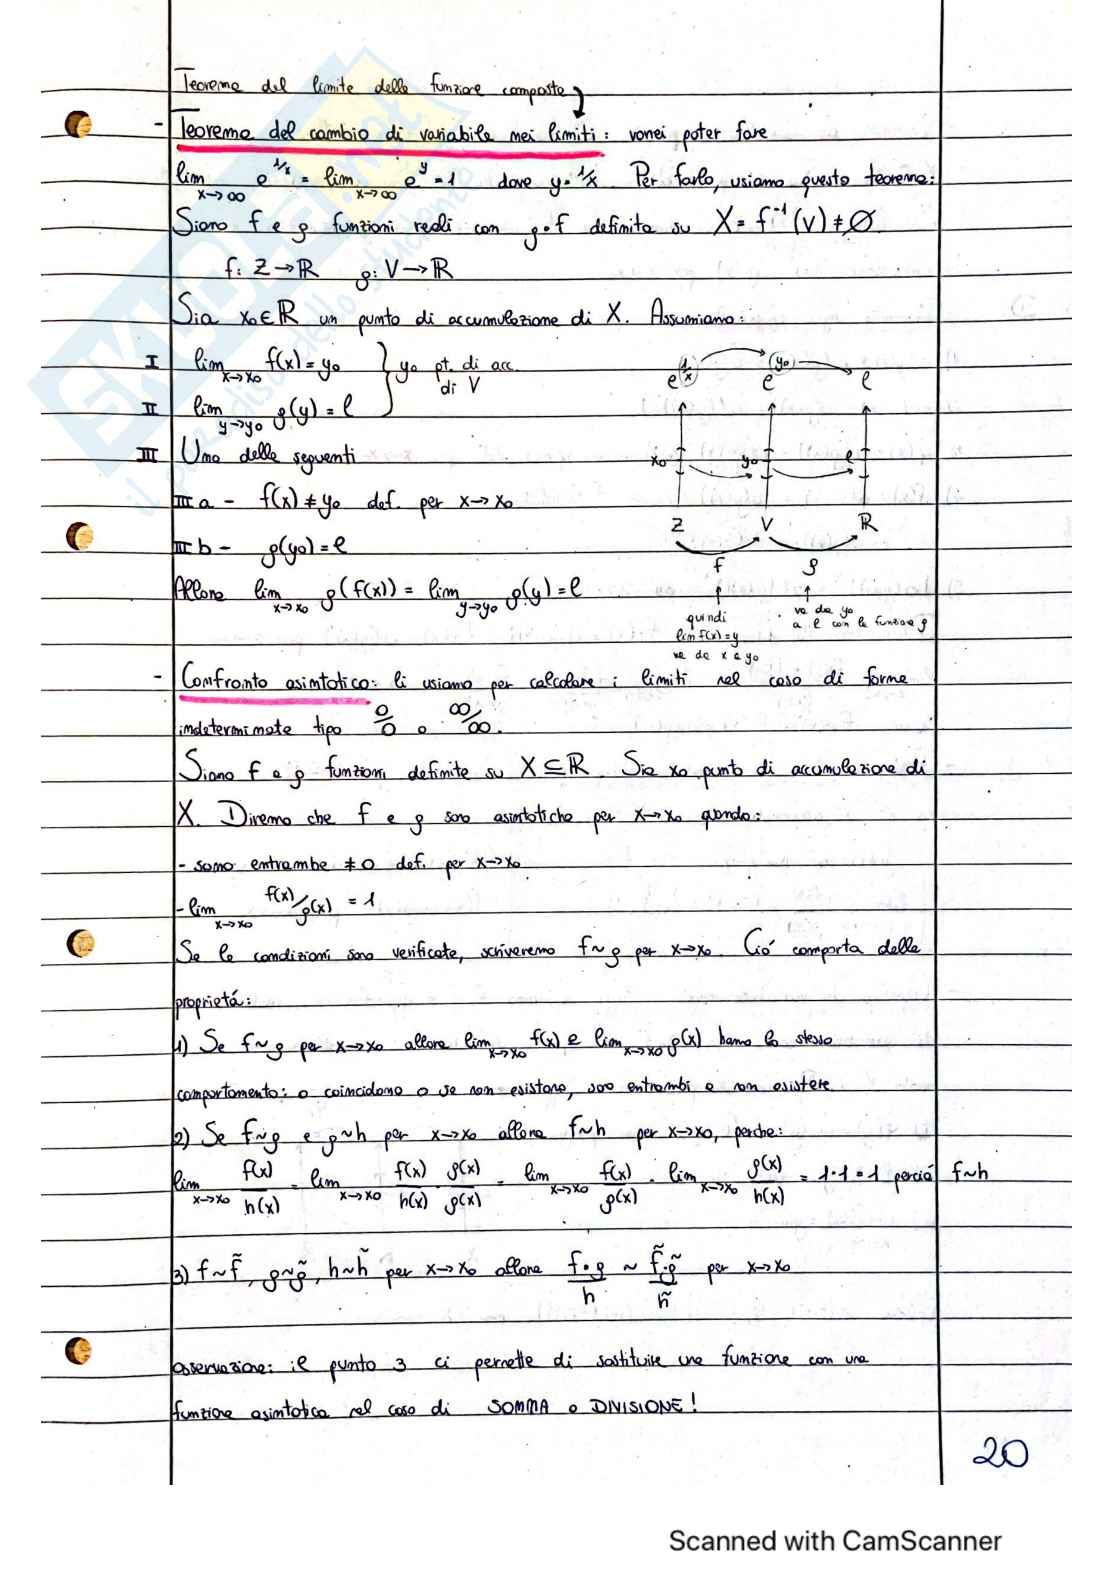 Teorema del limite delle funzione composte
- Teorema del cambio di variabile nei limiti: vorrei poter fare
lim x→∞ e^1/x = lim x→∞ e^y = 1 dove y = 1/x Per farlo, usiamo questo teorema:
Siano f e g funzioni reali con g∘f definita su X = f⁻¹(V) ≠ ∅
f: Z → ℝ g: V → ℝ
Sia x₀ ∈ ℝ un punto di accumulazione di X. Assumiamo:
I lim x→x₀ f(x) = y₀ } y₀ pt. di acc. di V
II lim y→y₀ g(y) = l
III Una delle seguenti
III a - f(x) ≠ y₀ def. per x→x₀
III b - g(y₀) = l
Allora lim x→x₀ g(f(x)) = lim y→y₀ g(y) = l
e^(1/x) e^(y₀) l
x₀ y₀ l
Z V ℝ
f g
quindi
lim f(x) = y
va da x a y₀
va da y₀
a l con la funzione g
- Confronto asintotico: li usiamo per calcolare i limiti nel caso di forme
indeterminate tipo 0/0 o ∞/∞.
Siano f e g funzioni definite su X ⊆ ℝ. Sia x₀ punto di accumulazione di
X. Diremo che f e g sono asintotiche per x→x₀ quando:
- sono entrambe ≠ 0 def. per x→x₀
- lim x→x₀ f(x)/g(x) = 1
Se le condizioni sono verificate, scriveremo f~g per x→x₀. Ció comporta delle
proprietá:
1) Se f~g per x→x₀ allora lim x→x₀ f(x) e lim x→x₀ g(x) hanno lo stesso
comportamento: o coincidono o se non esistono, sono entrambi a non esistere.
2) Se f~g e g~h per x→x₀ allora f~h per x→x₀, perche:
lim x→x₀ f(x)/h(x) = lim x→x₀ f(x)/h(x) g(x)/g(x) = lim x→x₀ f(x)/g(x) · lim x→x₀ g(x)/h(x) = 1·1 = 1 perciá f~h
3) f~f̃, g~g̃, h~h̃ per x→x₀ allora f·g/h ~ f̃·g̃/h̃ per x→x₀
osservazione: il punto 3 ci permette di sostituire una funzione con una
funzione asintotica nel caso di SOMMA o DIVISIONE!
20
Scanned with CamScanner